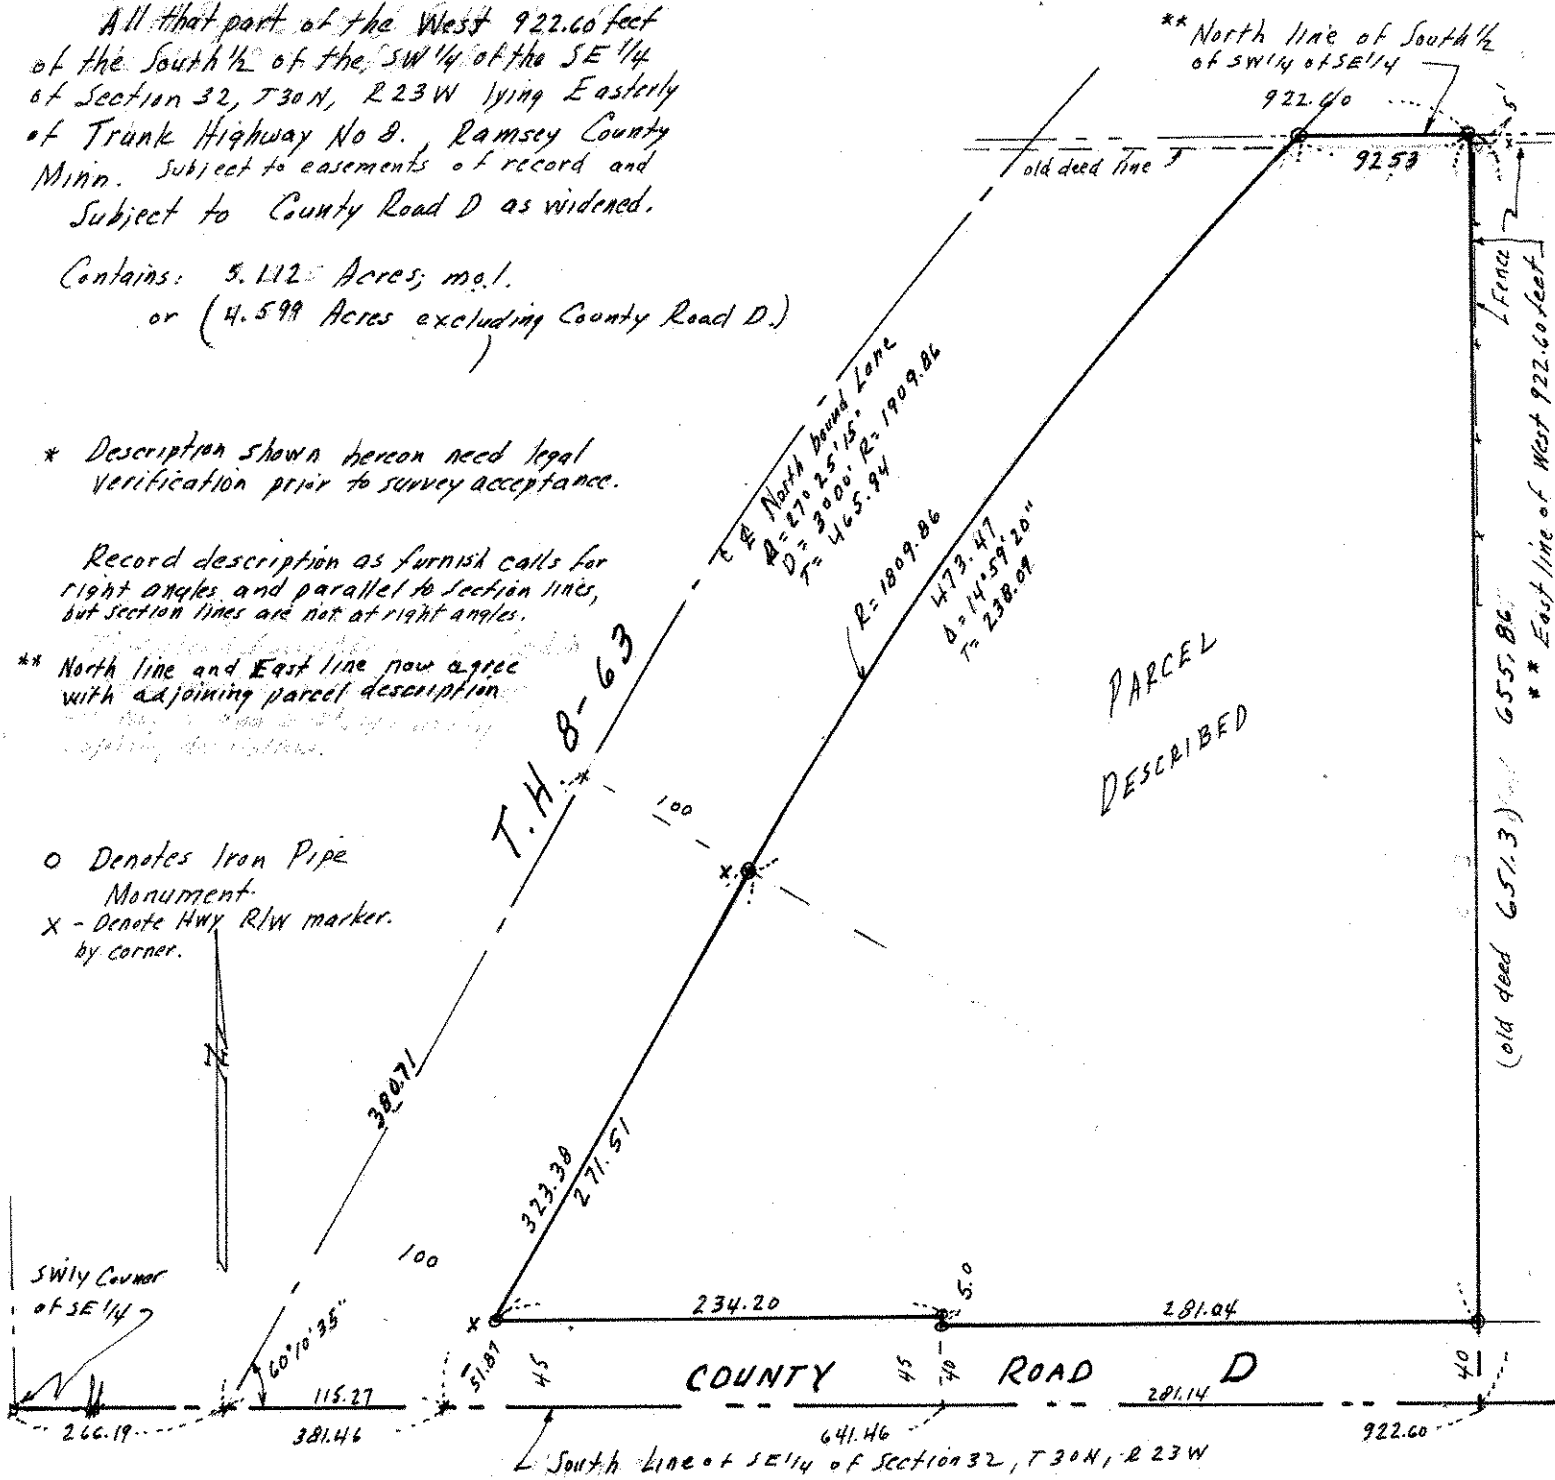 All that part of the West 922.60 feet
of the South 1/2 of the SW 1/4 of the SE 1/4
of Section 32, T30N, R23W lying Easterly
of Trunk Highway No 8., Ramsey County
Minn. Subject to easements of record and
Subject to County Road D as widened.
Contains: 5.112 Acres; m.o.l.
or (4.599 Acres excluding County Road D.)
* Description shown hereon need legal
verification prior to survey acceptance.
Record description as furnish calls for
right angles and parallel to section lines,
but section lines are not at right angles.
** North line and East line now agree
with adjoining parcel description
o Denotes Iron Pipe
Monument.
x - Denote Hwy R/W marker.
by corner.
** North line of South 1/2
of SW 1/4 of SE 1/4
922.60
5'
old deed line
92.53
Fence
** East line of West 922.60 feet
℄ North bound Lane
Δ = 27° 25' 15"
D = 3° 00' R = 1909.86
T = 465.94
R = 1809.86
473.47
Δ = 14° 59' 20"
T = 238.09
PARCEL
DESCRIBED
(old deed 651.3) 655.86
T.H. 8-63
100
x
380.71
323.38
271.51
100
SWly Corner
of SE 1/4
60°10'35"
x
51.87
234.20
5.0
281.04
45
COUNTY
45
40
ROAD D
40
115.27
281.14
266.19
381.46
641.46
922.60
South Line of SE 1/4 of Section 32, T30N, R23W